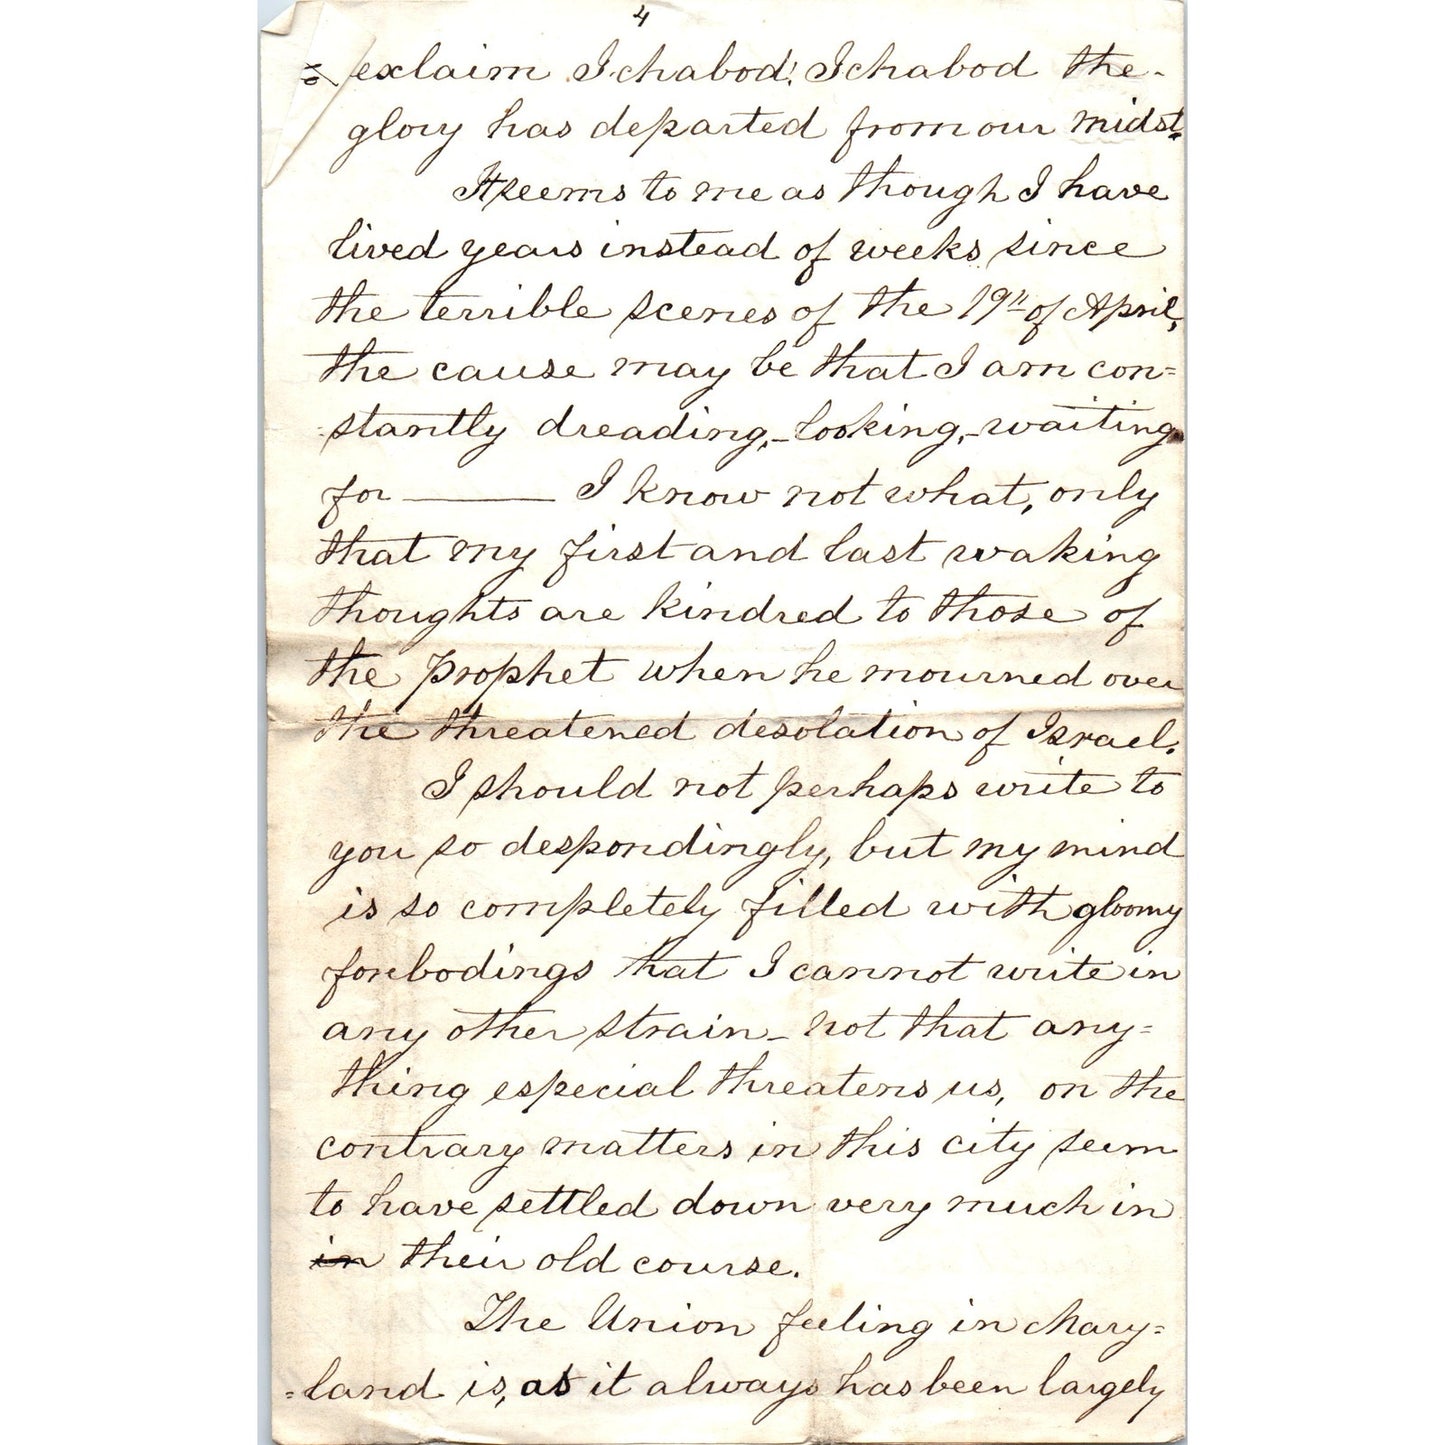 4
exclaim Ichabod! Ichabod the
glory has departed from our midst.
It seems to me as though I have
lived years instead of weeks since
the terrible scenes of the 19" of April,
the cause may be that I am con=
=stantly dreading,-looking,-waiting
for ——— I know not what, only
that my first and last waking
thoughts are kindred to those of
the Prophet when he mourned over
the threatened desolation of Israel.
I should not perhaps write to
you so despondingly, but my mind
is so completely filled with gloomy
forebodings that I cannot write in
any other strain - not that any=
thing especial threatens us, on the
contrary matters in this city seem
to have settled down very much in
in their old course.
The Union feeling in Mary=
=land is, as it always has been largely